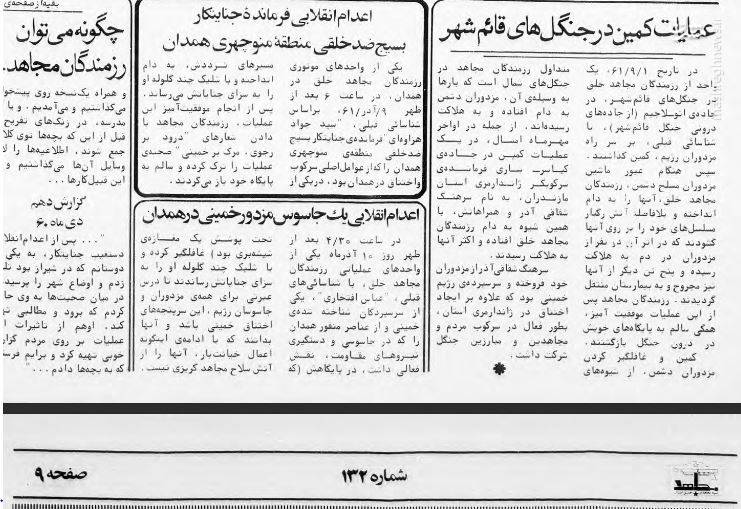 عملیات کمین در جنگل‌های قائم‌شهر
در تاریخ ۶۱/۹/۱، یک
واحد از رزمندگان مجاهد خلق
در جنگلهای قائم‌شهر، در
جاده‌ی اتوسلاجیم (از جاده‌های
درونی جنگل قائم‌شهر)، با
شناسائی قبلی، بر سر راه
مزدوران رژیم، کمین گذاشتند.
سپس هنگام عبور ماشین
مزدوران مسلح دشمن، رزمندگان
مجاهد خلق، آنها را به دام
انداخته و بلافاصله آتش رگبار
مسلسل‌های خود را بر روی آنها
گشودند که در اثر آن دو نفر از
مزدوران در دم به هلاکت
رسیده و پنج تن دیگر از آنها
نیز مجروح و به بیمارستان منتقل
گردیدند. رزمندگان مجاهد پس
از این عملیات موفقیت آمیز،
همگی سالم به پایگاه‌های خویش
در درون جنگل بازگشتند.
کمین و غافلگیر کردن
مزدوران دشمن، از شیوه‌های
متداول رزمندگان مجاهد در
جنگل‌های شمال است که بارها
به وسیله‌ی آن، مزدوران دشمن
به دام افتاده و به هلاکت
رسیده‌اند. از جمله در اواخر
مهرماه امسال، در یک
عملیات کمین در جاده‌ی
کیاسر ساری فرمانده‌ی
سرکوبگر ژاندارمری استان
مازندران، به نام سرهنگ
شقاقی آذر و همراهانش، با
همین شیوه به دام رزمندگان
مجاهد خلق افتاده و اکثر آنها
به هلاکت رسیدند.
سرهنگ شقاقی آذر از مزدوران
خود فروخته و سرسپرده‌ی رژیم
خمینی بود که علاوه بر ایجاد
اختناق در ژاندارمری استان،
بطور فعال در سرکوب مردم و
مجاهدین و مبارزین جنگل
شرکت داشت.
اعدام انقلابی فرماندهٔ جنایتکار
بسیج ضدخلقی منطقهٔ منوچهری همدان
یکی از واحدهای موتوری
رزمندگان مجاهد خلق در
همدان، در ساعت ۶ بعد از
ظهر ۹/آذر/۶۱، براساس
شناسائی قبلی، "سید جواد
هزاوه‌ای" فرمانده‌ی جنایتکار بسیج
ضدخلقی منطقه‌ی منوچهری
همدان را که از عوامل اصلی سرکوب
واختناق در همدان بود، در یکی از
مسیرهای ترددش، به دام
انداخته و با شلیک چند گلوله او
را به سزای جنایاتش می‌رساند.
پس از انجام موفقیت‌آمیز این
عملیات، رزمندگان مجاهد با
دادن شعارهای "درود بر
رجوی، مرگ بر خمینی" صحنه‌ی
عملیات را ترک کرده و سالم به
پایگاه خود باز می‌گردند.
اعدام انقلابی یك جاسوس مزدور خمینی در همدان
در ساعت ۴/۳۰ بعد از
ظهر روز ۱۰ آذرماه یکی از
واحدهای عملیاتی رزمندگان
مجاهد خلق، با شناسائی‌های
قبلی، "عباس افتخاری"، یکی
از سرسپردگان شناخته شده‌ی
خمینی و از عناصر منفور همدان
را که در جاسوسی و دستگیری
نیروهای مقاومت، نقش
فعالی داشت، در پایگاهش (که
تحت پوشش یک مغازه‌ی
شیشه‌بری بود) غافلگیر کرده و
با شلیک چند گلوله او را به
سزای جنایاتش رساندند تا درس
عبرتی برای همه‌ی مزدوران و
جاسوسان رژیم، این سرپنجه‌های
اختناق خمینی باشد و آنها
بدانند که با ادامه‌ی اینگونه
اعمال خیانت‌بار، آنها را از
آتش سلاح مجاهد گریزی نیست.
بقیه از صفحه‌ی
چگونه می‌توان
رزمندگان مجاهد
و همراه یک‌نسخه روی پیشخوا
می‌گذاشتیم و می‌آمدیم. و یا
مدرسه، در زنگ‌های تفریح
قبل از این که بچه‌ها توی کلا
جمع شوند، اطلاعیه‌ها را لا
وسایل آن‌ها می‌گذاشتیم و
این قبیل کارها ...
گزارش دهم
دی ماه ۶۰
"... پس از اعدام انقلا
دستغیب جنایتکار، به یکی
دوستانم که در شیراز بود تل
زدم و اوضاع شهر را پرسید
در میان صحبت‌ها به وی حا
کردم که برود و مطالبی تهـ
کند. اوهم از تاثیرات ا
عملیات بر روی مردم گزار
خوبی تهیه کرد و برایم فرسـ
که به بچه‌ها دادم ..."
مجاهد
شماره ۱۳۲
صفحه ۹